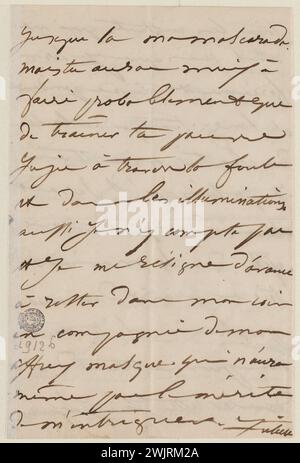 jusque là ma mascarade.
mais tu auras mieux à
faire probablement que
de traîner ta pauvre
Juju à travers la foule
et dans les illuminations
aussi je n'y compte pas
et je me résigne d'avance
à rester dans mon coin
en compagnie de mon
affreux masque qui n'aura
même pas le mérite
de m'intriguer.
Juliette
alamy
Image ID: 2WJRM2A
www.alamy.com